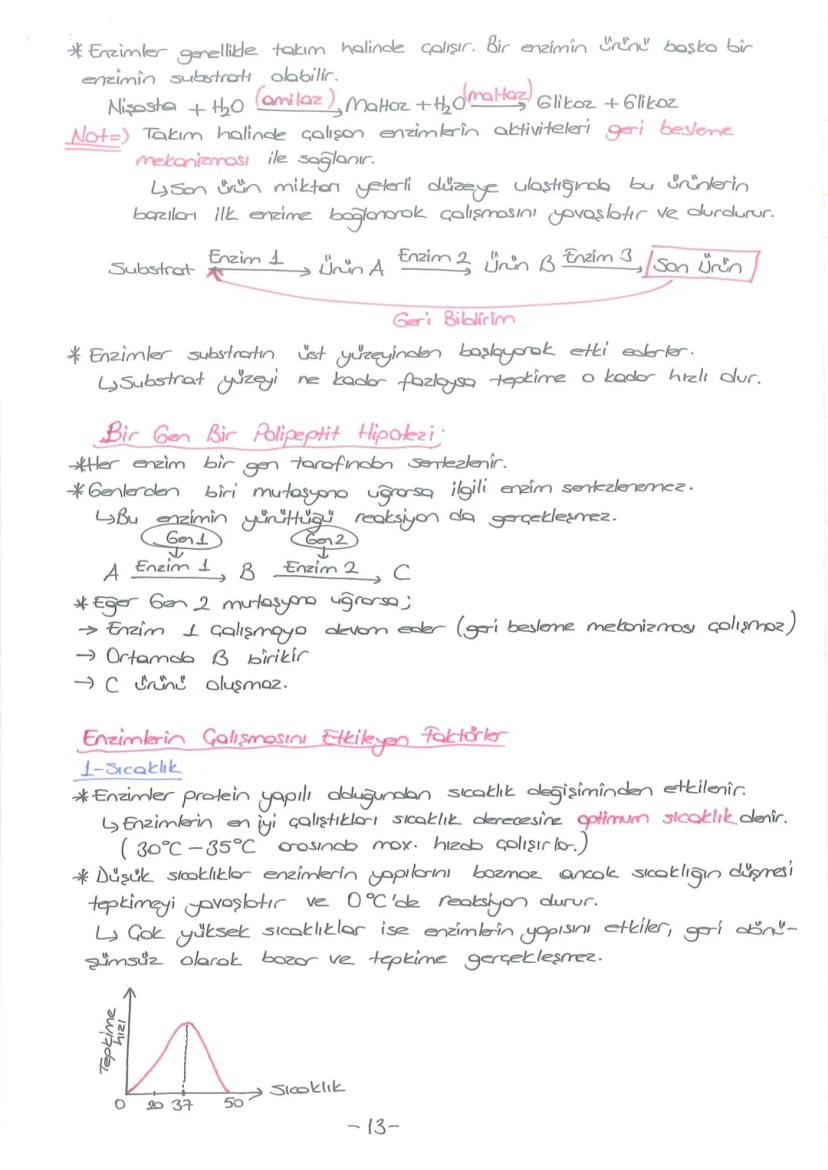 * Enzimler genellikle takım halinde çalışır. Bir enzimin ürünü başka bir
enzimin substratı olabilir.
Nişasta + H₂O (amilaz) → Maltoz + H₂O (maltaz) → Glikoz + Glikoz
Not=) Takım halinde çalışan enzimlerin aktiviteleri geri besleme
mekanizması ile sağlanır.
↳ Son ürün miktarı yeterli düzeye ulaştığında bu ürünlerin
bazıları ilk enzime bağlanarak çalışmasını yavaşlatır ve durdurur.
Substrat Enzim 1 → Ürün A Enzim 2 → Ürün B Enzim 3 → Son Ürün
Geri Bildirim
* Enzimler substratın üst yüzeyinden başlayarak etki ederler.
↳ Substrat yüzeyi ne kadar fazlaysa tepkime o kadar hızlı olur.
Bir Gen Bir Polipeptit Hipotezi:
* Her enzim bir gen tarafından sentezlenir.
* Genlerden biri mutasyona uğrarsa ilgili enzim sentezlenemez.
↳ Bu enzimin yürüttüğü reaksiyon da gerçekleşmez.
Gen 1 Gen 2
A Enzim 1 → B Enzim 2 → C
* Eğer Gen 2 mutasyona uğrarsa;
→ Enzim 1 çalışmaya devam eder (geri besleme mekanizması çalışmaz)
→ Ortamda B birikir
→ C ürünü oluşmaz.
Enzimlerin Çalışmasını Etkileyen Faktörler
1-Sıcaklık
* Enzimler protein yapılı olduğundan sıcaklık değişiminden etkilenir.
↳ Enzimlerin en iyi çalıştıkları sıcaklık derecesine optimum sıcaklık denir.
(30°C - 35°C arasında max. hızda çalışırlar.)
* Düşük sıcaklıklar enzimlerin yapılarını bozmaz ancak sıcaklığın düşmesi
tepkimeyi yavaşlatır ve 0°C'de reaksiyon durur.
↳ Çok yüksek sıcaklıklar ise enzimlerin yapısını etkiler, geri dönü-
şümsüz olarak bozar ve tepkime gerçekleşmez.
Tepkime hızı
Sıcaklık
0 20 37 50
-13-